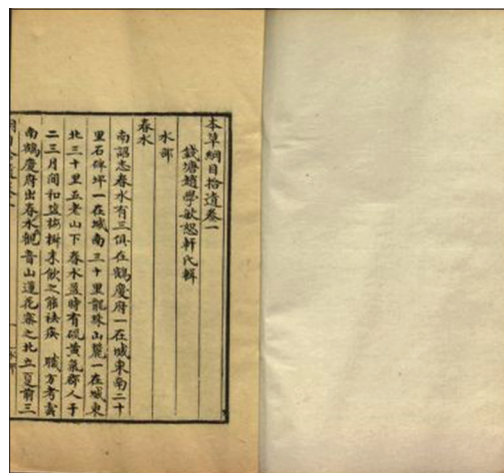 本草綱目拾遺卷一
錢塘趙學敏恕軒氏輯
水部
春水
南詔志春水有三俱在鶴慶府一在城東南二十
里石碑坪一在城南三十里龍珠山麓一在城東
北三十里五老山下春水盛時有硫黃氣郡人于
二三月間和鹽梅椒末飲之能祛疾 職方考雲
南鶴慶府出春水觀音山蓮花寨之北立夏前三